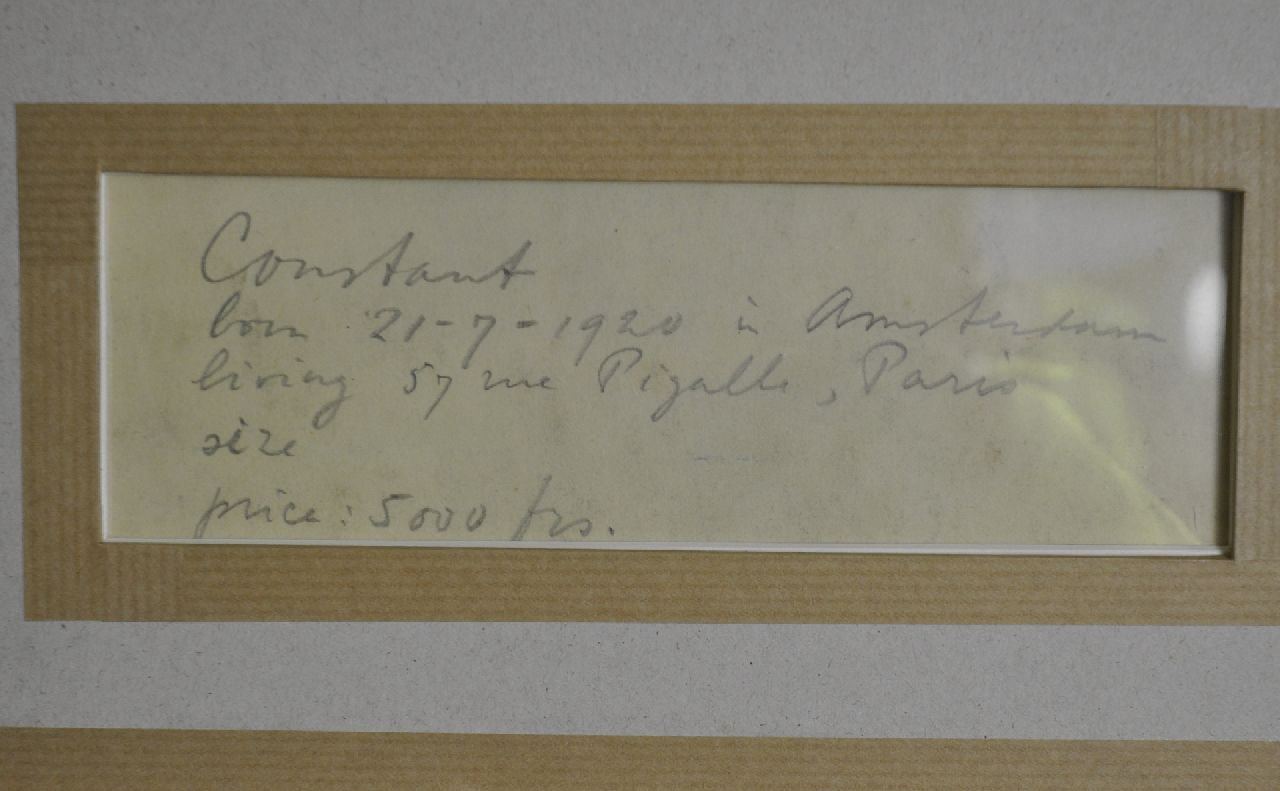 Constant
born 21-7-1920 in Amsterdam
living 57 rue Pigalle, Paris
size
price: 5000 frs.